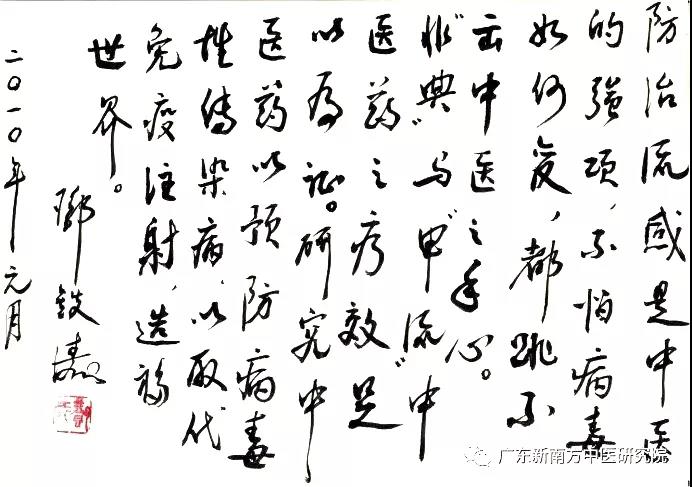 防治流感是中医
的强项，不怕病毒
如何变，都跳不
出中医之手心。
“非典”与“甲流”中
医药之疗效足
以为证。研究中
医药以预防病毒
性传染病，以取代
免疫注射，造福
世界。
鄧鉄濤
二〇一〇年元月
广东新南方中医研究院